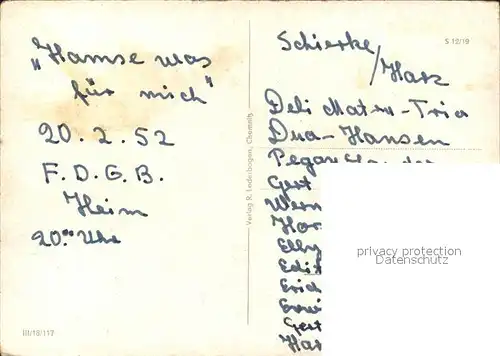 „Hamse was
für mich"
20.2.52
F.D.G.B.
Heim
20.⁰⁰ Uhr
III/18/117
Verlag R. Lederbogen, Chemnitz
S 12/19
Schierke
/Harz
Deli Maten-Trio
Duo-Hansen
Gert
Wern
Hor
Elly
Edit
Erich
Erwi
Gert
Har
privacy protection
Datenschutz